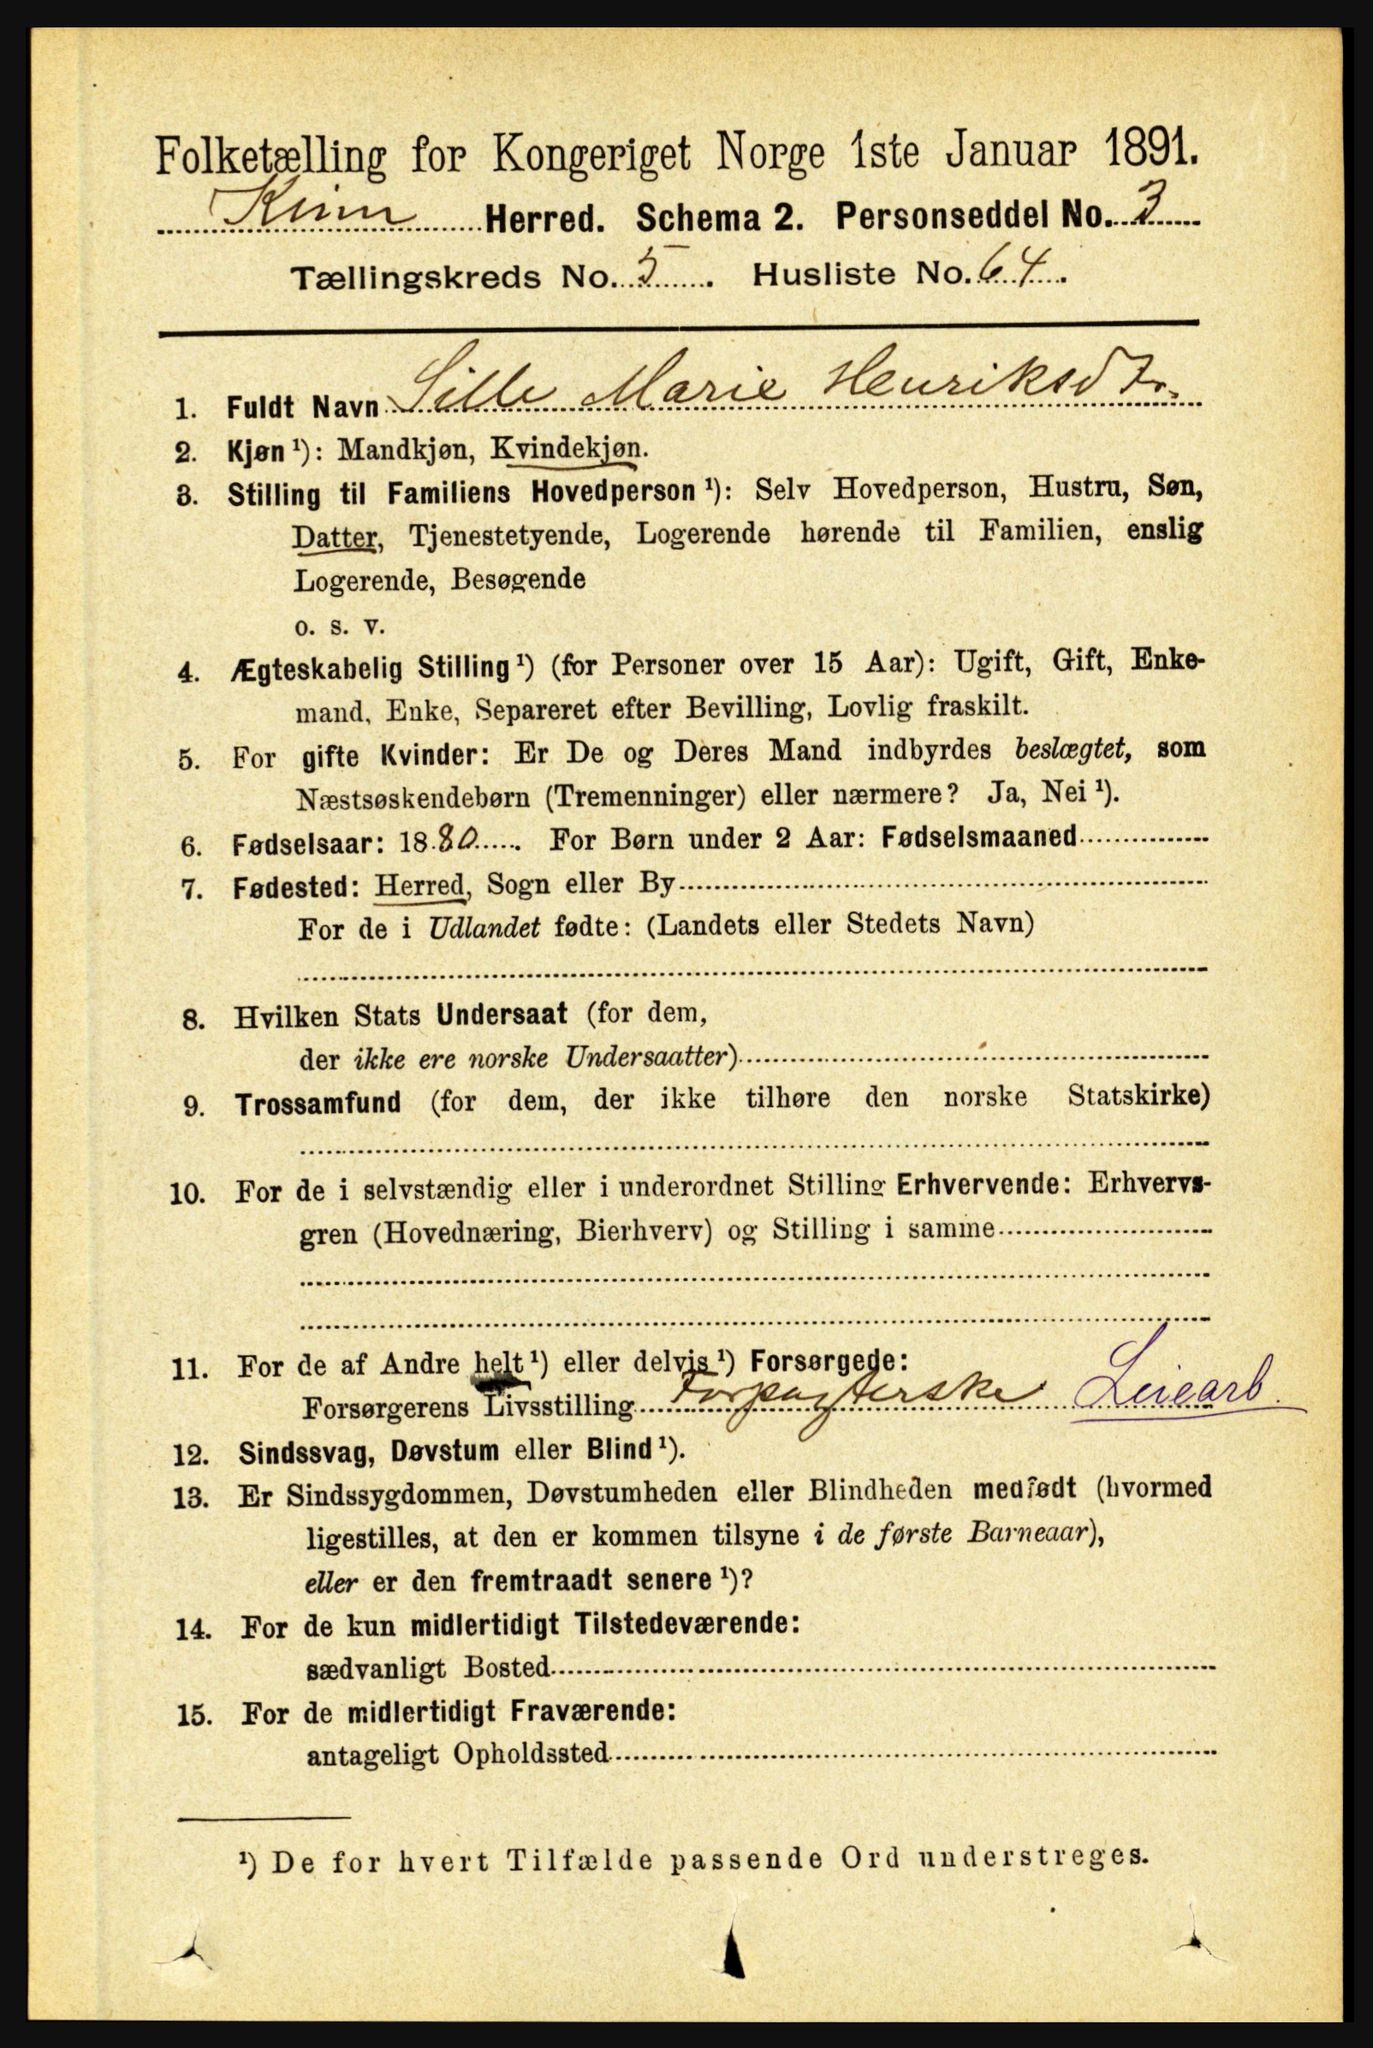 Folketælling for Kongeriget Norge 1ste Januar 1891.
Kinn Herred. Schema 2. Personseddel No. 3
Tællingskreds No. 5. Husliste No. 64.
1. Fuldt Navn Sille Marie Henriksdtr.
2. Kjøn ¹): Mandkjøn, Kvindekjøn.
3. Stilling til Familiens Hovedperson ¹): Selv Hovedperson, Hustru, Søn,
Datter, Tjenestetyende, Logerende hørende til Familien, enslig
Logerende, Besøgende
o. s. v.
4. Ægteskabelig Stilling ¹) (for Personer over 15 Aar): Ugift, Gift, Enke-
mand, Enke, Separeret efter Bevilling, Lovlig fraskilt.
5. For gifte Kvinder: Er De og Deres Mand indbyrdes beslægtet, som
Næstsøskendebørn (Tremenninger) eller nærmere? Ja, Nei ¹).
6. Fødselsaar: 1880. For Børn under 2 Aar: Fødselsmaaned
7. Fødested: Herred, Sogn eller By
For de i Udlandet fødte: (Landets eller Stedets Navn)
8. Hvilken Stats Undersaat (for dem,
der ikke ere norske Undersaatter)
9. Trossamfund (for dem, der ikke tilhøre den norske Statskirke)
10. For de i selvstændig eller i underordnet Stilling Erhvervende: Erhvervs-
gren (Hovednæring, Bierhverv) og Stilling i samme
11. For de af Andre helt ¹) eller delvis ¹) Forsørgede:
Forsørgerens Livsstilling Forpagterske Leiearb.
12. Sindssvag, Døvstum eller Blind ¹).
13. Er Sindssygdommen, Døvstumheden eller Blindheden medfødt (hvormed
ligestilles, at den er kommen tilsyne i de første Barneaar),
eller er den fremtraadt senere ¹)?
14. For de kun midlertidigt Tilstedeværende:
sædvanligt Bosted
15. For de midlertidigt Fraværende:
antageligt Opholdssted
¹) De for hvert Tilfælde passende Ord understreges.